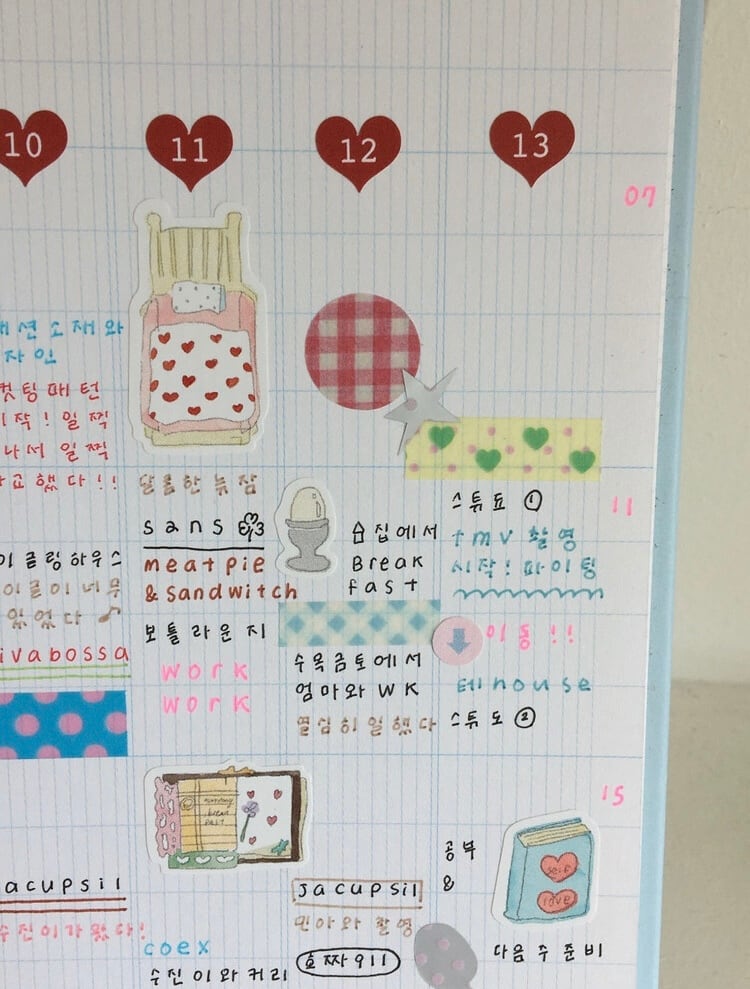 10
11
12
13
07
션 소 재 와
자 인
컷 팅 패 턴
작 ! 일 찍
나 서 일 찍
했 다 ! !
하 우 스
있 었 다
ivabossa
acupsil
수 진 이 가 왔 다 !
달 콤 한 늦 잠
sans
meat pie
& sandwitch
보 틀 라 운 지
work
work
coex
수 진 이 와 커 리
집 에 서
Break
fast
수 목 금 토 에 서
엄 마 와 WK
열 심 히 일 했 다
jacupsil
민 아 와 촬 영
효 짜 911
스 튜 됴 ①
tmv 촬 영
시 작 ! 파 이 팅
이 동 ! !
테 house
스 튜 됴 ②
공 부
&
self
love
다 음 수 준 비
11
15